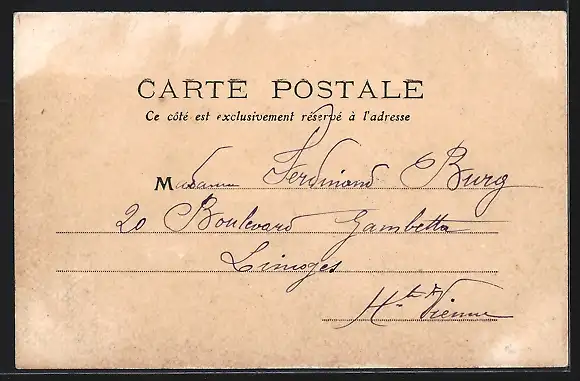 CARTE POSTALE
Ce côté est exclusivement réservé à l'adresse
Madame Ferdinand Burg
20 Boulevard Gambetta
Limoges
Hte Vienne